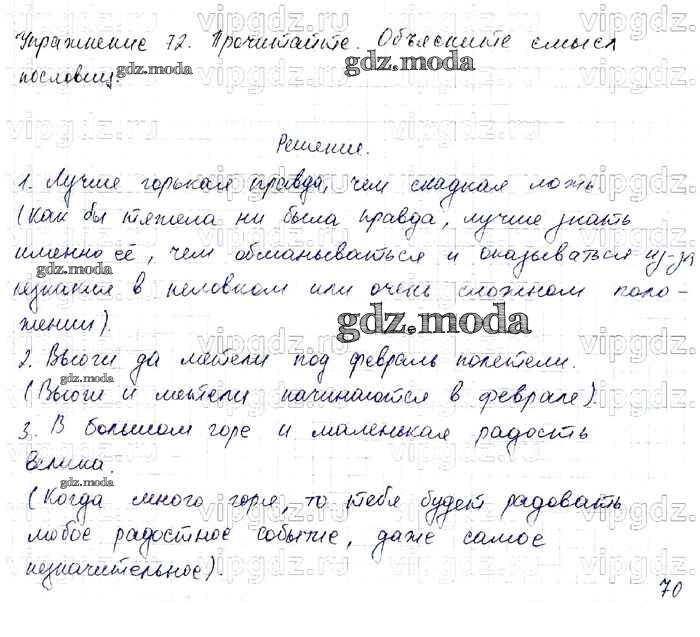 Упражнение 72. Прочитайте. Объясните смысл
пословиц.
Решение.
1. Лучше горькая правда, чем сладкая ложь
(Как бы тяжела ни была правда, лучше знать
именно её, чем обманываться и оказываться из-за
незнания в неловком или очень сложном поло-
жении).
2. Вьюги да метели под февраль полетели.
(Вьюги и метели начинаются в феврале).
3. В большом горе и маленькая радость
велика.
(Когда много горя, то тебя будет радовать
любое радостное событие, даже самое
незначительное).
70